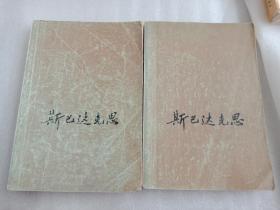 斯巴达克思
斯巴达克思